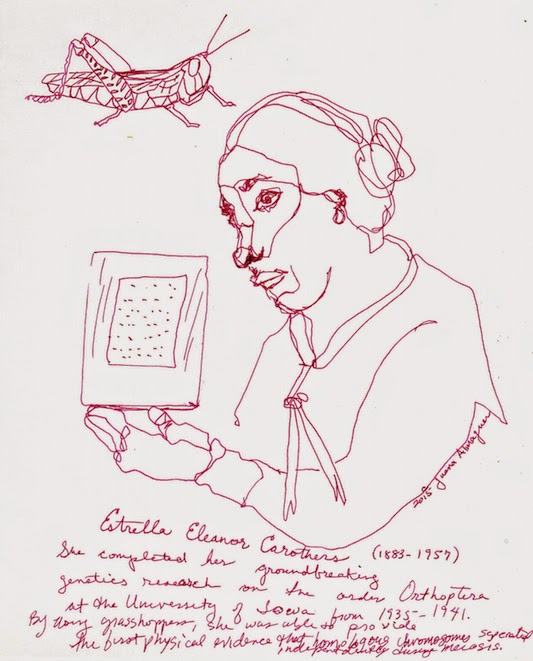 2015 Juana Alvraguer
Estrella Eleanor Carothers (1883-1957)
She completed her groundbreaking
genetics research on the order Orthoptera
at the University of Iowa from 1935-1941.
By using grasshoppers, she was able to provide
the first physical evidence that homologous chromosomes seperated
independently during meiosis.